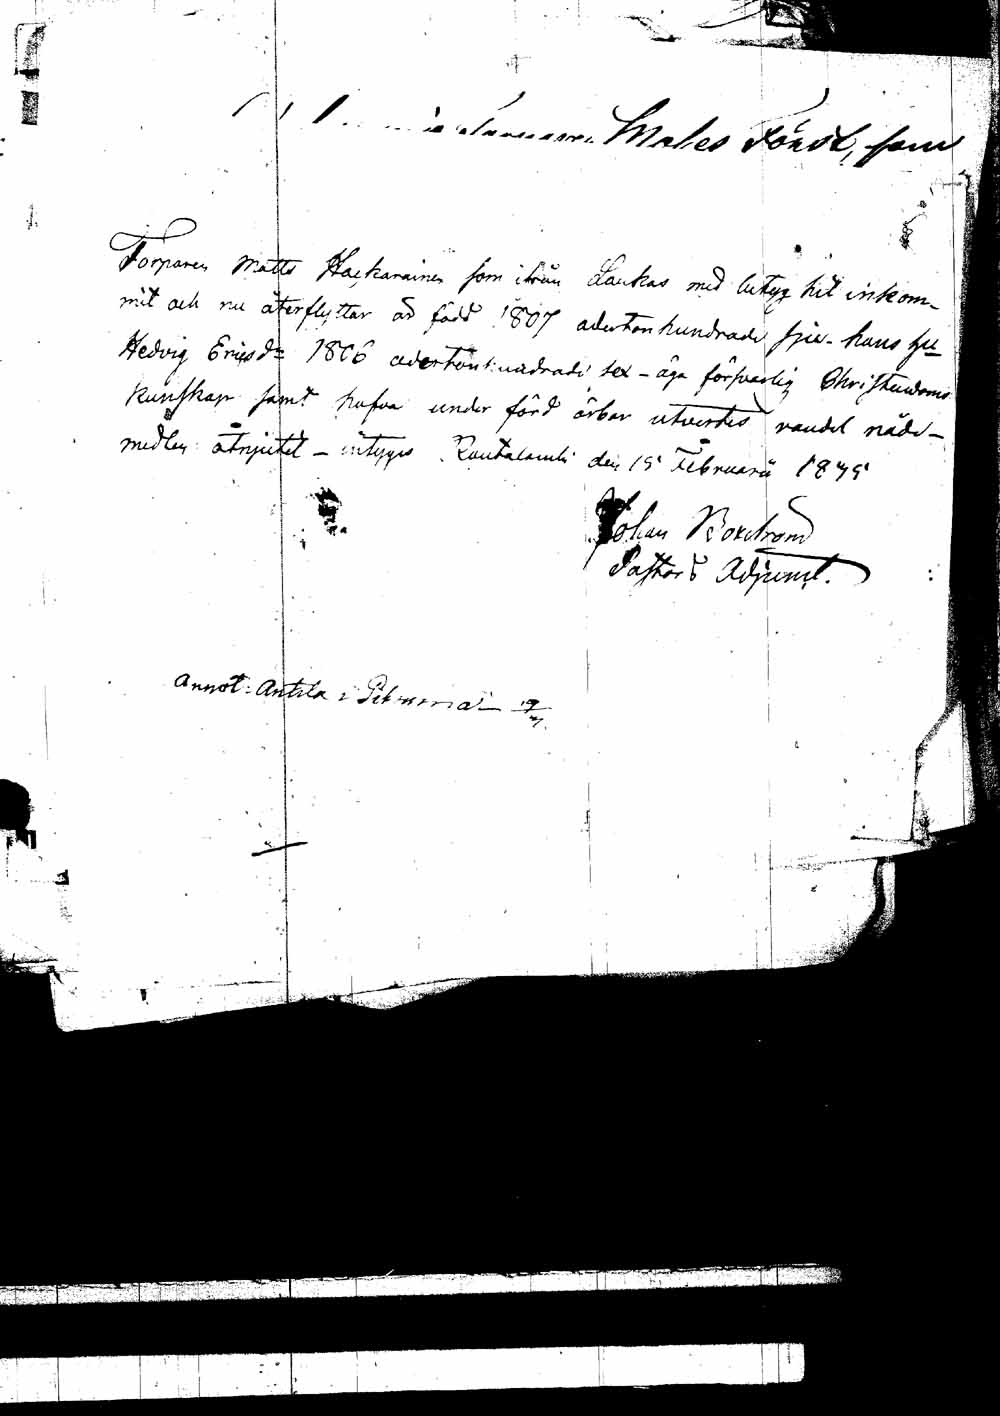 Males Först, som
Torparen Matts Hackarainen som ifrån Laukas med betyg hit inkom-
mit och nu återflyttar är född 1807 adertonhundrade sju - hans hu
Hedvig Ericsd= 1806 adertonhundrade sex - äga försvarlig Christendoms
kunskap samt hafva under förd ärbar utvertes vandel nåde-
medlen åtnjutit - intygas Rautalambi den 15 Februarii 1845
Johan Boxström
Pastors Adjunct.
Annot: Antila i